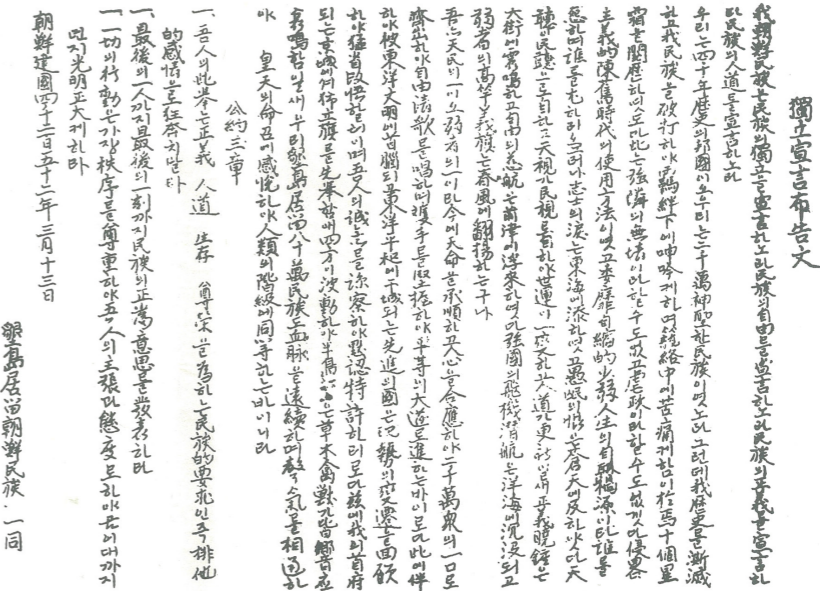 獨立宣言布告文
我朝鮮民族은民族의獨立을宣言하노라民族의自由를宣言하노라民族의正義를宣言하노
라民族의人道를宣言하노라
우리는四千年歷史의邦國이오우리는二千萬神聖한民族이엿노라그런데我歷史를澌滅
하고我民族을破打하야羈絆下에呻吟케하며籠絡中에苦痛케함이於焉十個星
霜을閱歷하엿도다이는強隣의無壞이라할수도업고虐政이라할수도업깃고優畧
主義的陳舊時代의使用方法이엿고委靡自縮的少弱人生의自取禍源이라誰를
怨하며誰를尤하리오그러나志士의淚는東海에添하엿고愚氓의怨은蒼天에及하얏다天
聽은民聽으로自하고天視는民視로自하야世運이一変하고人道가更新할새正義의曉鍾은
大街에震鳴하고自由의慈航은前津에浮來하엿다強國의飛機潛航은洋海에沉没되고
弱者의高竿義旗는春風에翻揚하는구나
吾亦天民의一이오弱者의一이라今에天命을承順하고人心을合應하야二千萬衆의一口로
齊出하야自由歌를唱하며雙手를堅握하야平等의大道로進하는바이로다此에伴
하야彼東洋文明에首腦되고東洋平和에干城되는先進의國은現勢의変遷을回顧
하야猛省改悟할터이며吾人의誠意를諒察하야黙認特許하리로다玆에我의首府
되는京城에서独立旗를先擧함에四方이波動하야半島江山은草木禽獸가皆響應
齊鳴함일새우리墾島居留八十萬民族도血脈을遠續하며聲氣를相通하
야 皇天의命召에感悅하야人類의階級에同等하는바이니라
公約三章
一、吾人의此擧는正義 人道 生存 尊榮을爲하는民族的要求인즉排他
的感情으로狂奔치말라
一、最後의一人까지最後의一刻까지民族의正當意思를發表하라
一、一切의行動은가장秩序를尊重하야吾人의主張과態度로하야금어대까지
던지光明正大케하라
朝鮮建國四千二百五十二年三月十三日
墾島居留朝鮮民族 一同